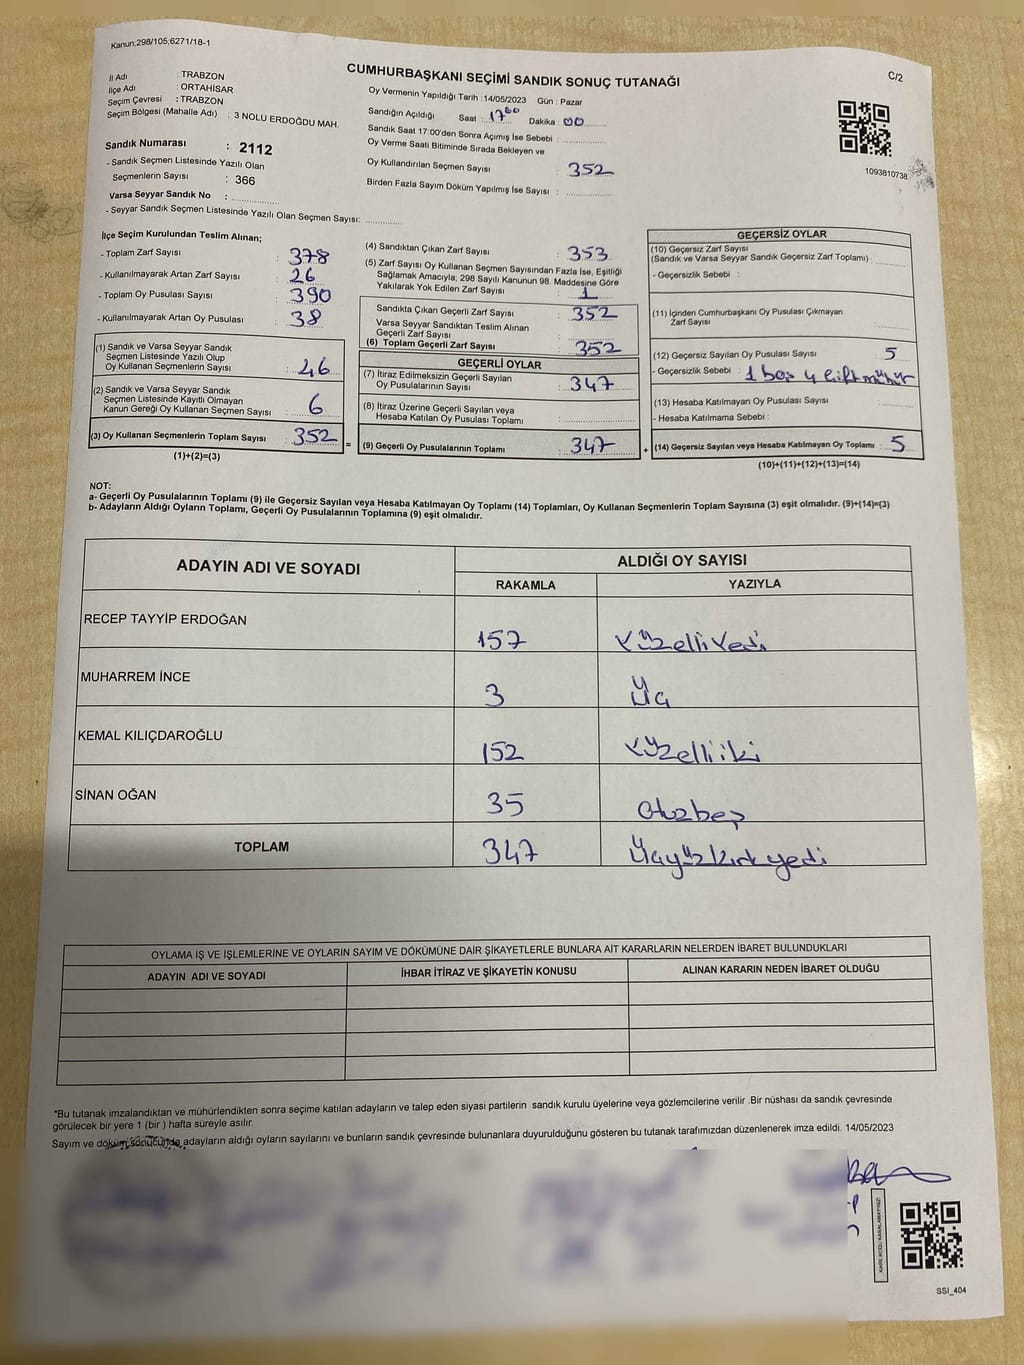 Kanun;298/105;6271/18-1
CUMHURBAŞKANI SEÇİMİ SANDIK SONUÇ TUTANAĞI
C/2
İl Adı : TRABZON
İlçe Adı : ORTAHİSAR
Seçim Çevresi : TRABZON
Seçim Bölgesi (Mahalle Adı) : 3 NOLU ERDOĞDU MAH.
Sandık Numarası : 2112
- Sandık Seçmen Listesinde Yazılı Olan
Seçmenlerin Sayısı : 366
Varsa Seyyar Sandık No :
- Seyyar Sandık Seçmen Listesinde Yazılı Olan Seçmen Sayısı:
Oy Vermenin Yapıldığı Tarih :14/05/2023 Gün : Pazar
Sandığın Açıldığı Saat : 17⁰⁰ Dakika : 00
Sandık Saat 17:00'den Sonra Açımış İse Sebebi :
Oy Verme Saati Bitiminde Sırada Bekleyen ve
Oy Kullandırılan Seçmen Sayısı : 352
Birden Fazla Sayım Döküm Yapılmış İse Sayısı :
1093810738
İlçe Seçim Kurulundan Teslim Alınan;
- Toplam Zarf Sayısı : 378
- Kullanılmayarak Artan Zarf Sayısı : 26
- Toplam Oy Pusulası Sayısı : 390
- Kullanılmayarak Artan Oy Pusulası : 38
(1) Sandık ve Varsa Seyyar Sandık
Seçmen Listesinde Yazılı Olup
Oy Kullanan Seçmenlerin Sayısı : 46
(2) Sandık ve Varsa Seyyar Sandık
Seçmen Listesinde Kayıtlı Olmayan
Kanun Gereği Oy Kullanan Seçmen Sayısı : 6
(3) Oy Kullanan Seçmenlerin Toplam Sayısı : 352
(1)+(2)=(3)
=
(4) Sandıktan Çıkan Zarf Sayısı : 353
(5) Zarf Sayısı Oy Kullanan Seçmen Sayısından Fazla İse, Eşitliği
Sağlamak Amacıyla; 298 Sayılı Kanunun 98. Maddesine Göre
Yakılarak Yok Edilen Zarf Sayısı : 1
Sandıkta Çıkan Geçerli Zarf Sayısı : 352
Varsa Seyyar Sandıktan Teslim Alınan
Geçerli Zarf Sayısı :
(6) Toplam Geçerli Zarf Sayısı : 352
GEÇERLİ OYLAR
(7) İtiraz Edilmeksizin Geçerli Sayılan
Oy Pusulalarının Sayısı : 347
(8) İtiraz Üzerine Geçerli Sayılan veya
Hesaba Katılan Oy Pusulası Toplamı :
(9) Geçerli Oy Pusulalarının Toplamı : 347
+
GEÇERSİZ OYLAR
(10) Geçersiz Zarf Sayısı
(Sandık ve Varsa Seyyar Sandık Geçersiz Zarf Toplamı) :
- Geçersizlik Sebebi :
(11) İçinden Cumhurbaşkanı Oy Pusulası Çıkmayan
Zarf Sayısı :
(12) Geçersiz Sayılan Oy Pusulası Sayısı : 5
- Geçersizlik Sebebi : 1 boş 4 çift mühür
(13) Hesaba Katılmayan Oy Pusulası Sayısı :
- Hesaba Katılmama Sebebi :
(14) Geçersiz Sayılan veya Hesaba Katılmayan Oy Toplamı : 5
(10)+(11)+(12)+(13)=(14)
NOT:
a- Geçerli Oy Pusulalarının Toplamı (9) ile Geçersiz Sayılan veya Hesaba Katılmayan Oy Toplamı (14) Toplamları, Oy Kullanan Seçmenlerin Toplam Sayısına (3) eşit olmalıdır. (9)+(14)=(3)
b- Adayların Aldığı Oyların Toplamı, Geçerli Oy Pusulalarının Toplamına (9) eşit olmalıdır.
ADAYIN ADI VE SOYADI
ALDIĞI OY SAYISI
RAKAMLA YAZIYLA
RECEP TAYYİP ERDOĞAN 157 Yüzelliyedi
MUHARREM İNCE 3 Üç
KEMAL KILIÇDAROĞLU 152 Yüzelliiki
SİNAN OĞAN 35 Otuzbeş
TOPLAM 347 Üçyüzkırkyedi
OYLAMA İŞ VE İŞLEMLERİNE VE OYLARIN SAYIM VE DÖKÜMÜNE DAİR ŞİKAYETLERLE BUNLARA AİT KARARLARIN NELERDEN İBARET BULUNDUKLARI
ADAYIN ADI VE SOYADI İHBAR İTİRAZ VE ŞİKAYETİN KONUSU ALINAN KARARIN NEDEN İBARET OLDUĞU
*Bu tutanak imzalandıktan ve mühürlendikten sonra seçime katılan adayların ve talep eden siyasi partilerin sandık kurulu üyelerine veya gözlemcilerine verilir .Bir nüshası da sandık çevresinde
görülecek bir yere 1 (bir ) hafta süreyle asılır.
Sayım ve döküm sonucunda, adayların aldığı oyların sayılarını ve bunların sandık çevresinde bulunanlara duyurulduğunu gösteren bu tutanak tarafımızdan düzenlenerek imza edildi. 14/05/2023
KARE KODU KARALAMAYINIZ!
SSI_404